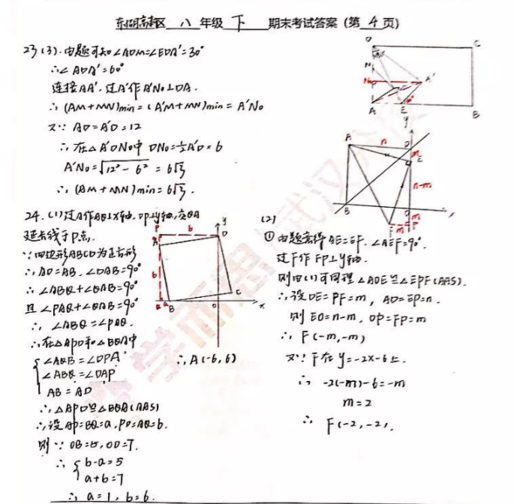 东湖高新区 八 年级 下 期末考试答案（第 4 页）
23(3). 由题可知∠ADM=∠EDA'=30°
∴∠ADA'=60°
连接AA'. 过A'作A'N₀⊥DA.
∴(AM+MN)min=(A'M+MN)min=A'N₀
又∵ AD=A'D=12
∴在△A'DN₀中 DN₀=½A'D=6
A'N₀=√12²-6²=6√3.
∴(AM+MN)min=6√3.
24.(1)过A作AQ⊥x轴. DP⊥y轴, 交QA
延长线于P点.
∵四边形ABCD为正方形
∴AD=AB. ∠DAB=90°
∴∠ABQ+∠QAB=90°
且∠PAD+∠QAB=90°
∴∠ABQ=∠PAD.
∴在△APD和△BQA中
∠AQB=∠DPA
∠ABQ=∠DAP
AB=AD
∴△APD≌△BQA(AAS)
∴设AP=BQ=a, PD=AQ=b.
则∵OB=5, OD=7.
∴ b-a=5
a+b=7
∴a=1, b=6.
∴A(-6,6)
(2)
① 由题意得AE=EF. ∠AEF=90°.
过F作FP⊥y轴.
则由(1)可同理△ADE≌△EPF(AAS).
∴设DE=PF=m, AD=EP=n.
则EO=n-m, OP=FP=m
∴F(-m,-m)
又∵F在y=-2x-6上.
∴-2(-m)-6=-m
m=2
∴F(-2,-2).